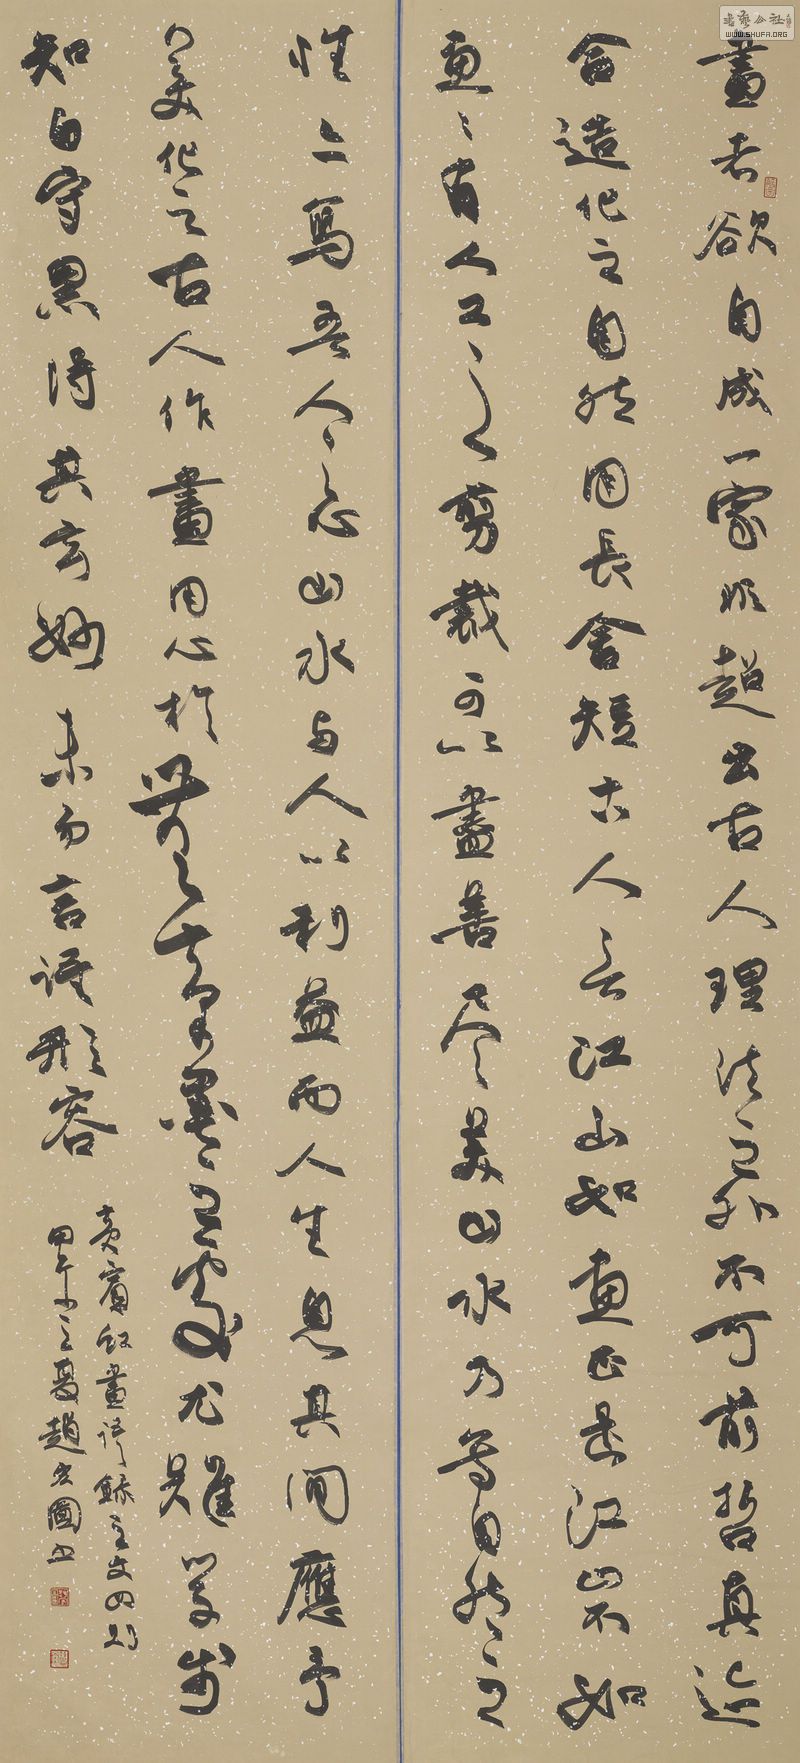 書藝公社
WWW.SHUFA.ORG
畫者欲自成一家非超出古人理法之外不可前哲真迹
合造化之自然用長舍短古人言江山如畫正是江山不如
畫畫有人工之剪裁可以盡善盡美山水乃寫自然之
性亦寫吾人之心山水與人以利益而人生息其間應予
以美化之古人作畫用心於無筆墨之處尤難學步
知白守黑得其玄妙未易言語形容
黄賓虹畫語録之文四則
甲午夏趙宏圖書